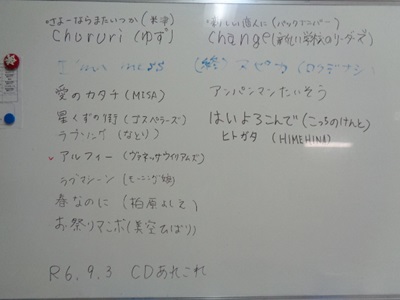 さよーならまたいつか(米津)
Chururi (ゆず)
愛のカタチ (MISA)
星くずの街 (ゴスペラーズ)
ラブソング (なとり)
アルフィー (ヴァネッサウィリアムズ)
ラブマシーン (モーニング娘)
春なのに (柏原よしえ)
お祭りマンボ (美空ひばり)
R6.9.3 CDあれこれ
(バックナンバー)
Change (新しい学校のリーダーズ)
アンパンマンたいそう
はいよろこんで (こっちのけんと)
ヒトガタ (HIMEHINA)